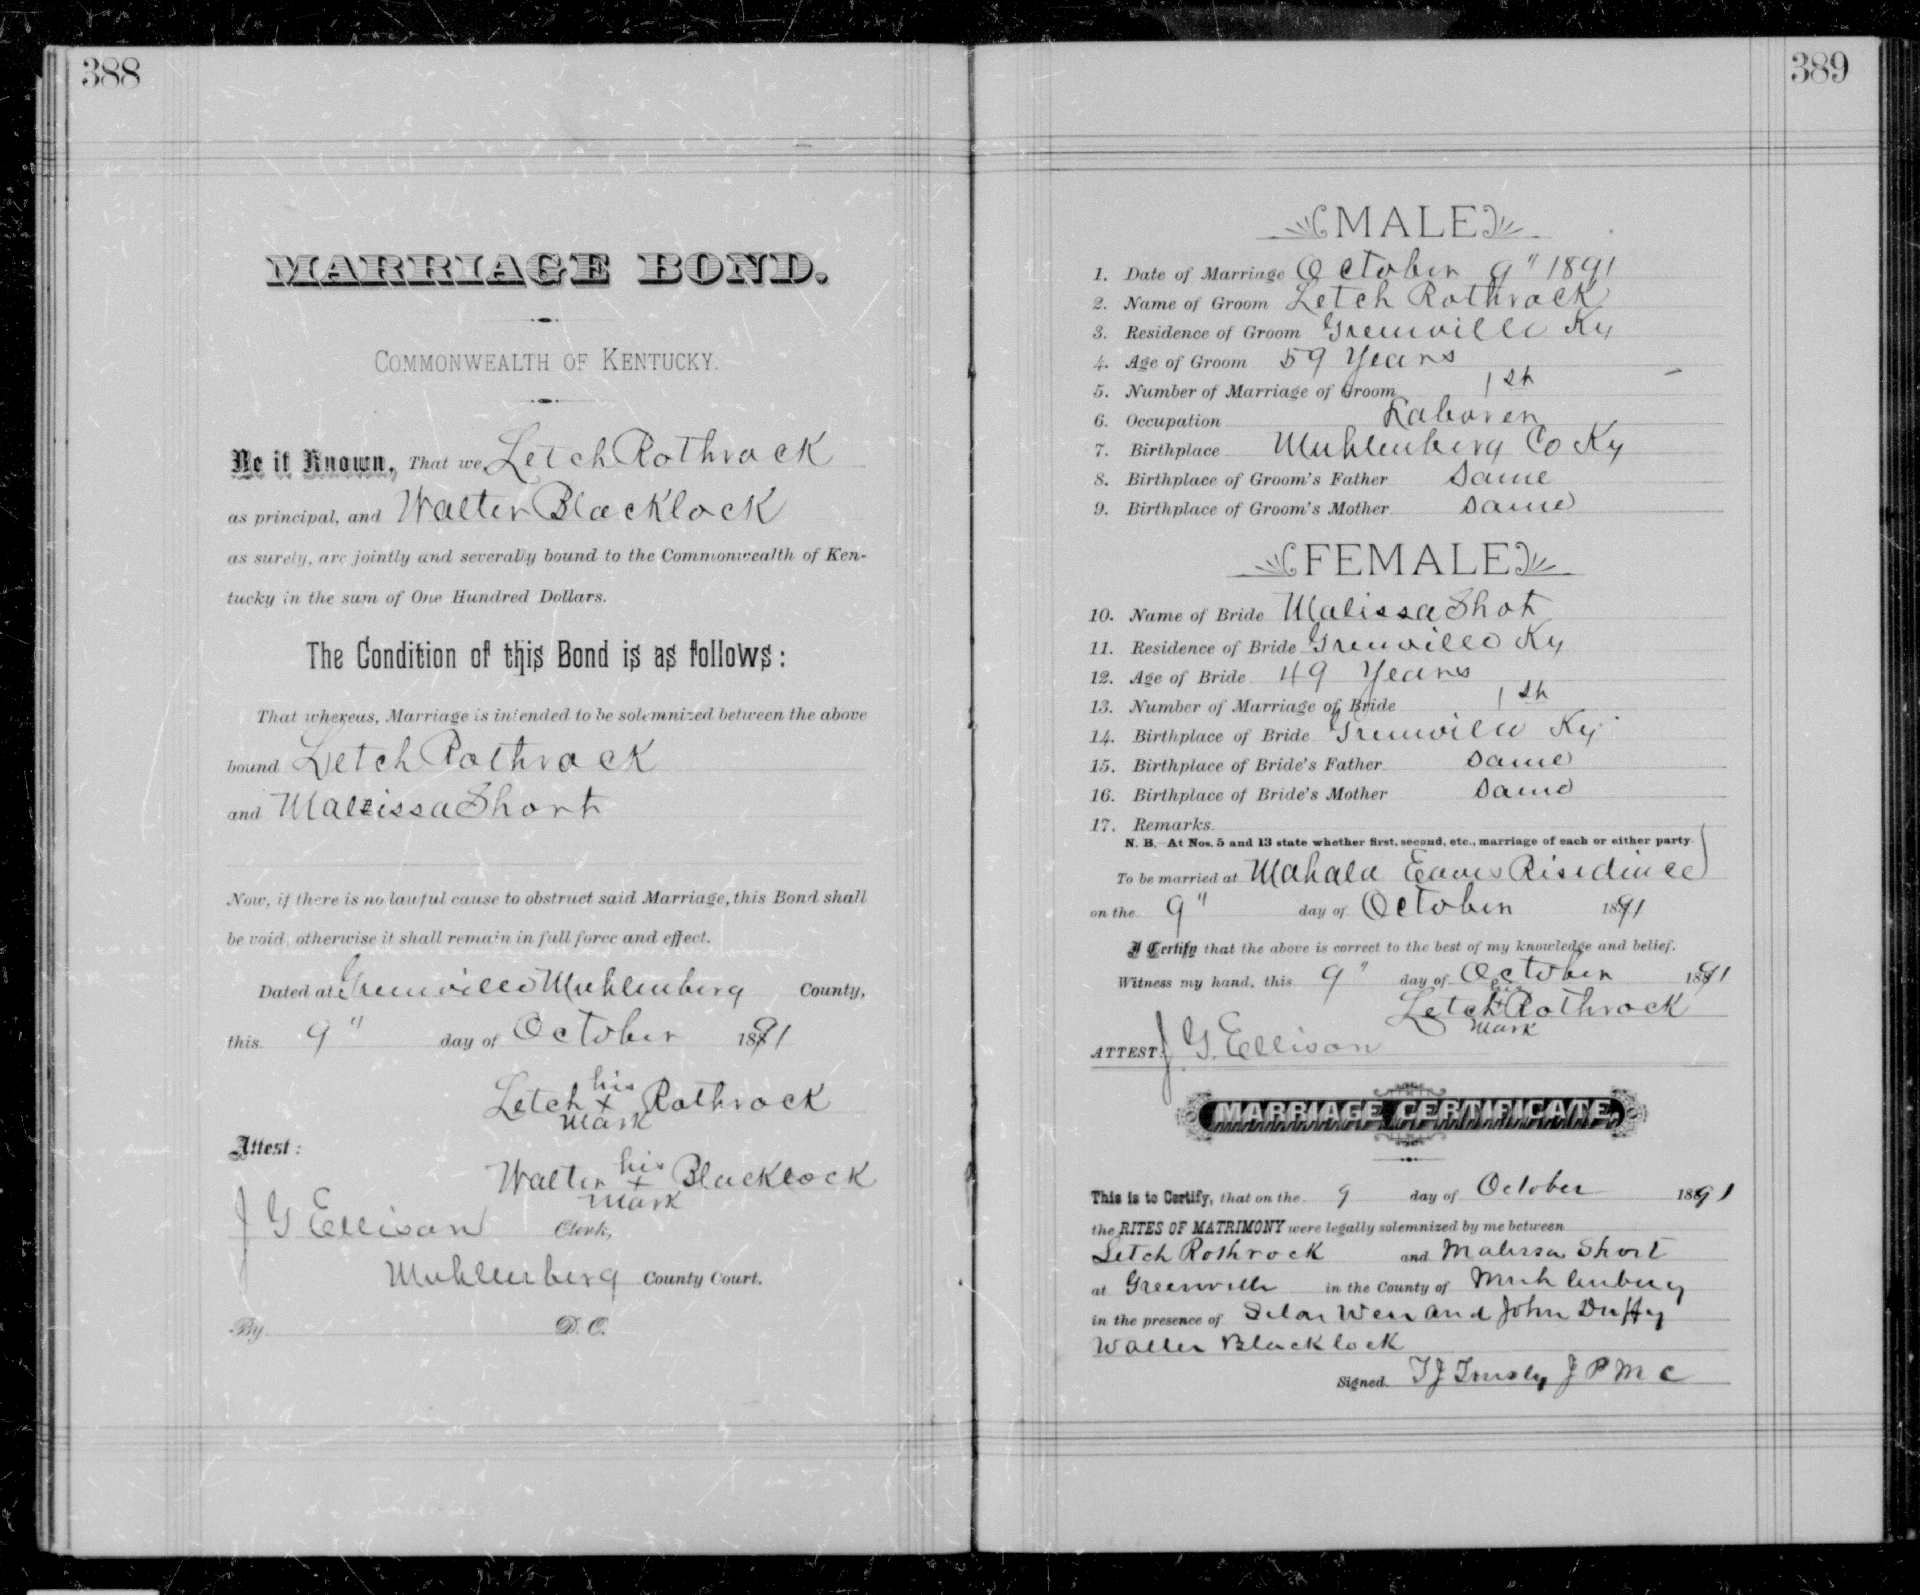 388
MARRIAGE BOND.
COMMONWEALTH OF KENTUCKY.
Be it Known, That we, Letch Rothrock
as principal, and Walter Blacklock
as surely, are jointly and severally bound to the Commonwealth of Ken-
tucky in the sum of One Hundred Dollars.
The Condition of this Bond is as follows:
That whereas, Marriage is intended to be solemnized between the above
bound Letch Rothrock
and Malissa Short
Now, if there is no lawful cause to obstruct said Marriage, this Bond shall
be void, otherwise it shall remain in full force and effect.
Dated at Greenville Muhlenberg County,
this 9" day of October 1891
Letch his x mark Rothrock
Attest:
Walter his x mark Blacklock
J G Ellison Clerk,
Muhlenberg County Court.
By D. C.
389
MALE
1. Date of Marriage October 9" 1891
2. Name of Groom Letch Rothrock
3. Residence of Groom Grenville Ky
4. Age of Groom 59 Years
5. Number of Marriage of Groom 1st
6. Occupation Laborer
7. Birthplace Muhlenberg Co Ky
8. Birthplace of Groom's Father Same
9. Birthplace of Groom's Mother Same
FEMALE
10. Name of Bride Malissa Shot
11. Residence of Bride Grenville Ky
12. Age of Bride 49 Years
13. Number of Marriage of Bride 1st
14. Birthplace of Bride Grenville Ky
15. Birthplace of Bride's Father Same
16. Birthplace of Bride's Mother Same
17. Remarks
N. B. At Nos. 5 and 13 state whether first, second, etc., marriage of each or either party.
To be married at Mahala Eaves Residence
on the 9" day of October 1891
I Certify that the above is correct to the best of my knowledge and belief.
Witness my hand, this 9" day of October 1891
Letch his x mark Rothrock
ATTEST: J. G. Ellison
MARRIAGE CERTIFICATE.
This is to Certify, that on the 9 day of October 1891
the RITES OF MATRIMONY were legally solemnized by me between
Letch Rothrock and Malissa Short
at Greenville in the County of Muhlenberg
in the presence of and John Duffy
Walter Blacklock
Signed T J J P M C